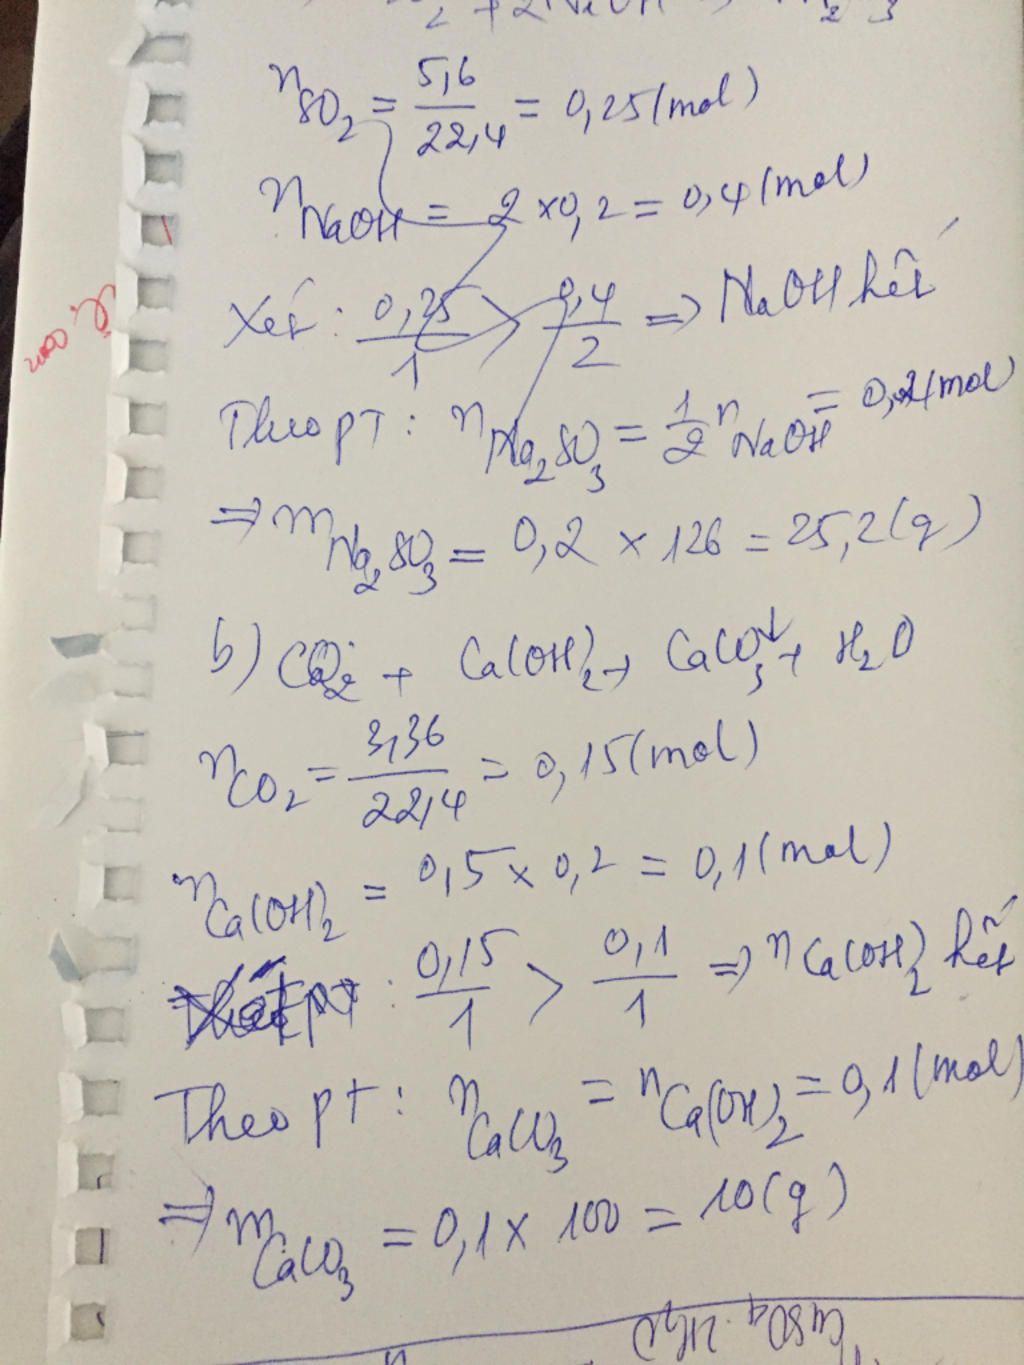 2 + 2NaOH → Na2 3
nSO2 = 5,6/22,4 = 0,25 (mol)
nNaOH = 2 × 0,2 = 0,4 (mol)
Xét : 0,25/1 > 0,4/2 => NaOH hết
Theo pT : nNa2SO3 = 1/2 nNaOH = 0,2 (mol)
=> mNa2SO3 = 0,2 × 126 = 25,2 (g)
b) CO2 + Ca(OH)2 → CaCO3↓ + H2O
nCO2 = 3,36/22,4 = 0,15 (mol)
nCa(OH)2 = 0,5 × 0,2 = 0,1 (mol)
: 0,15/1 > 0,1/1 => nCa(OH)2 hết
Theo pt : nCaCO3 = nCa(OH)2 = 0,1 (mol)
=> mCaCO3 = 0,1 × 100 = 10 (g)
CuSO4 . 2H2O